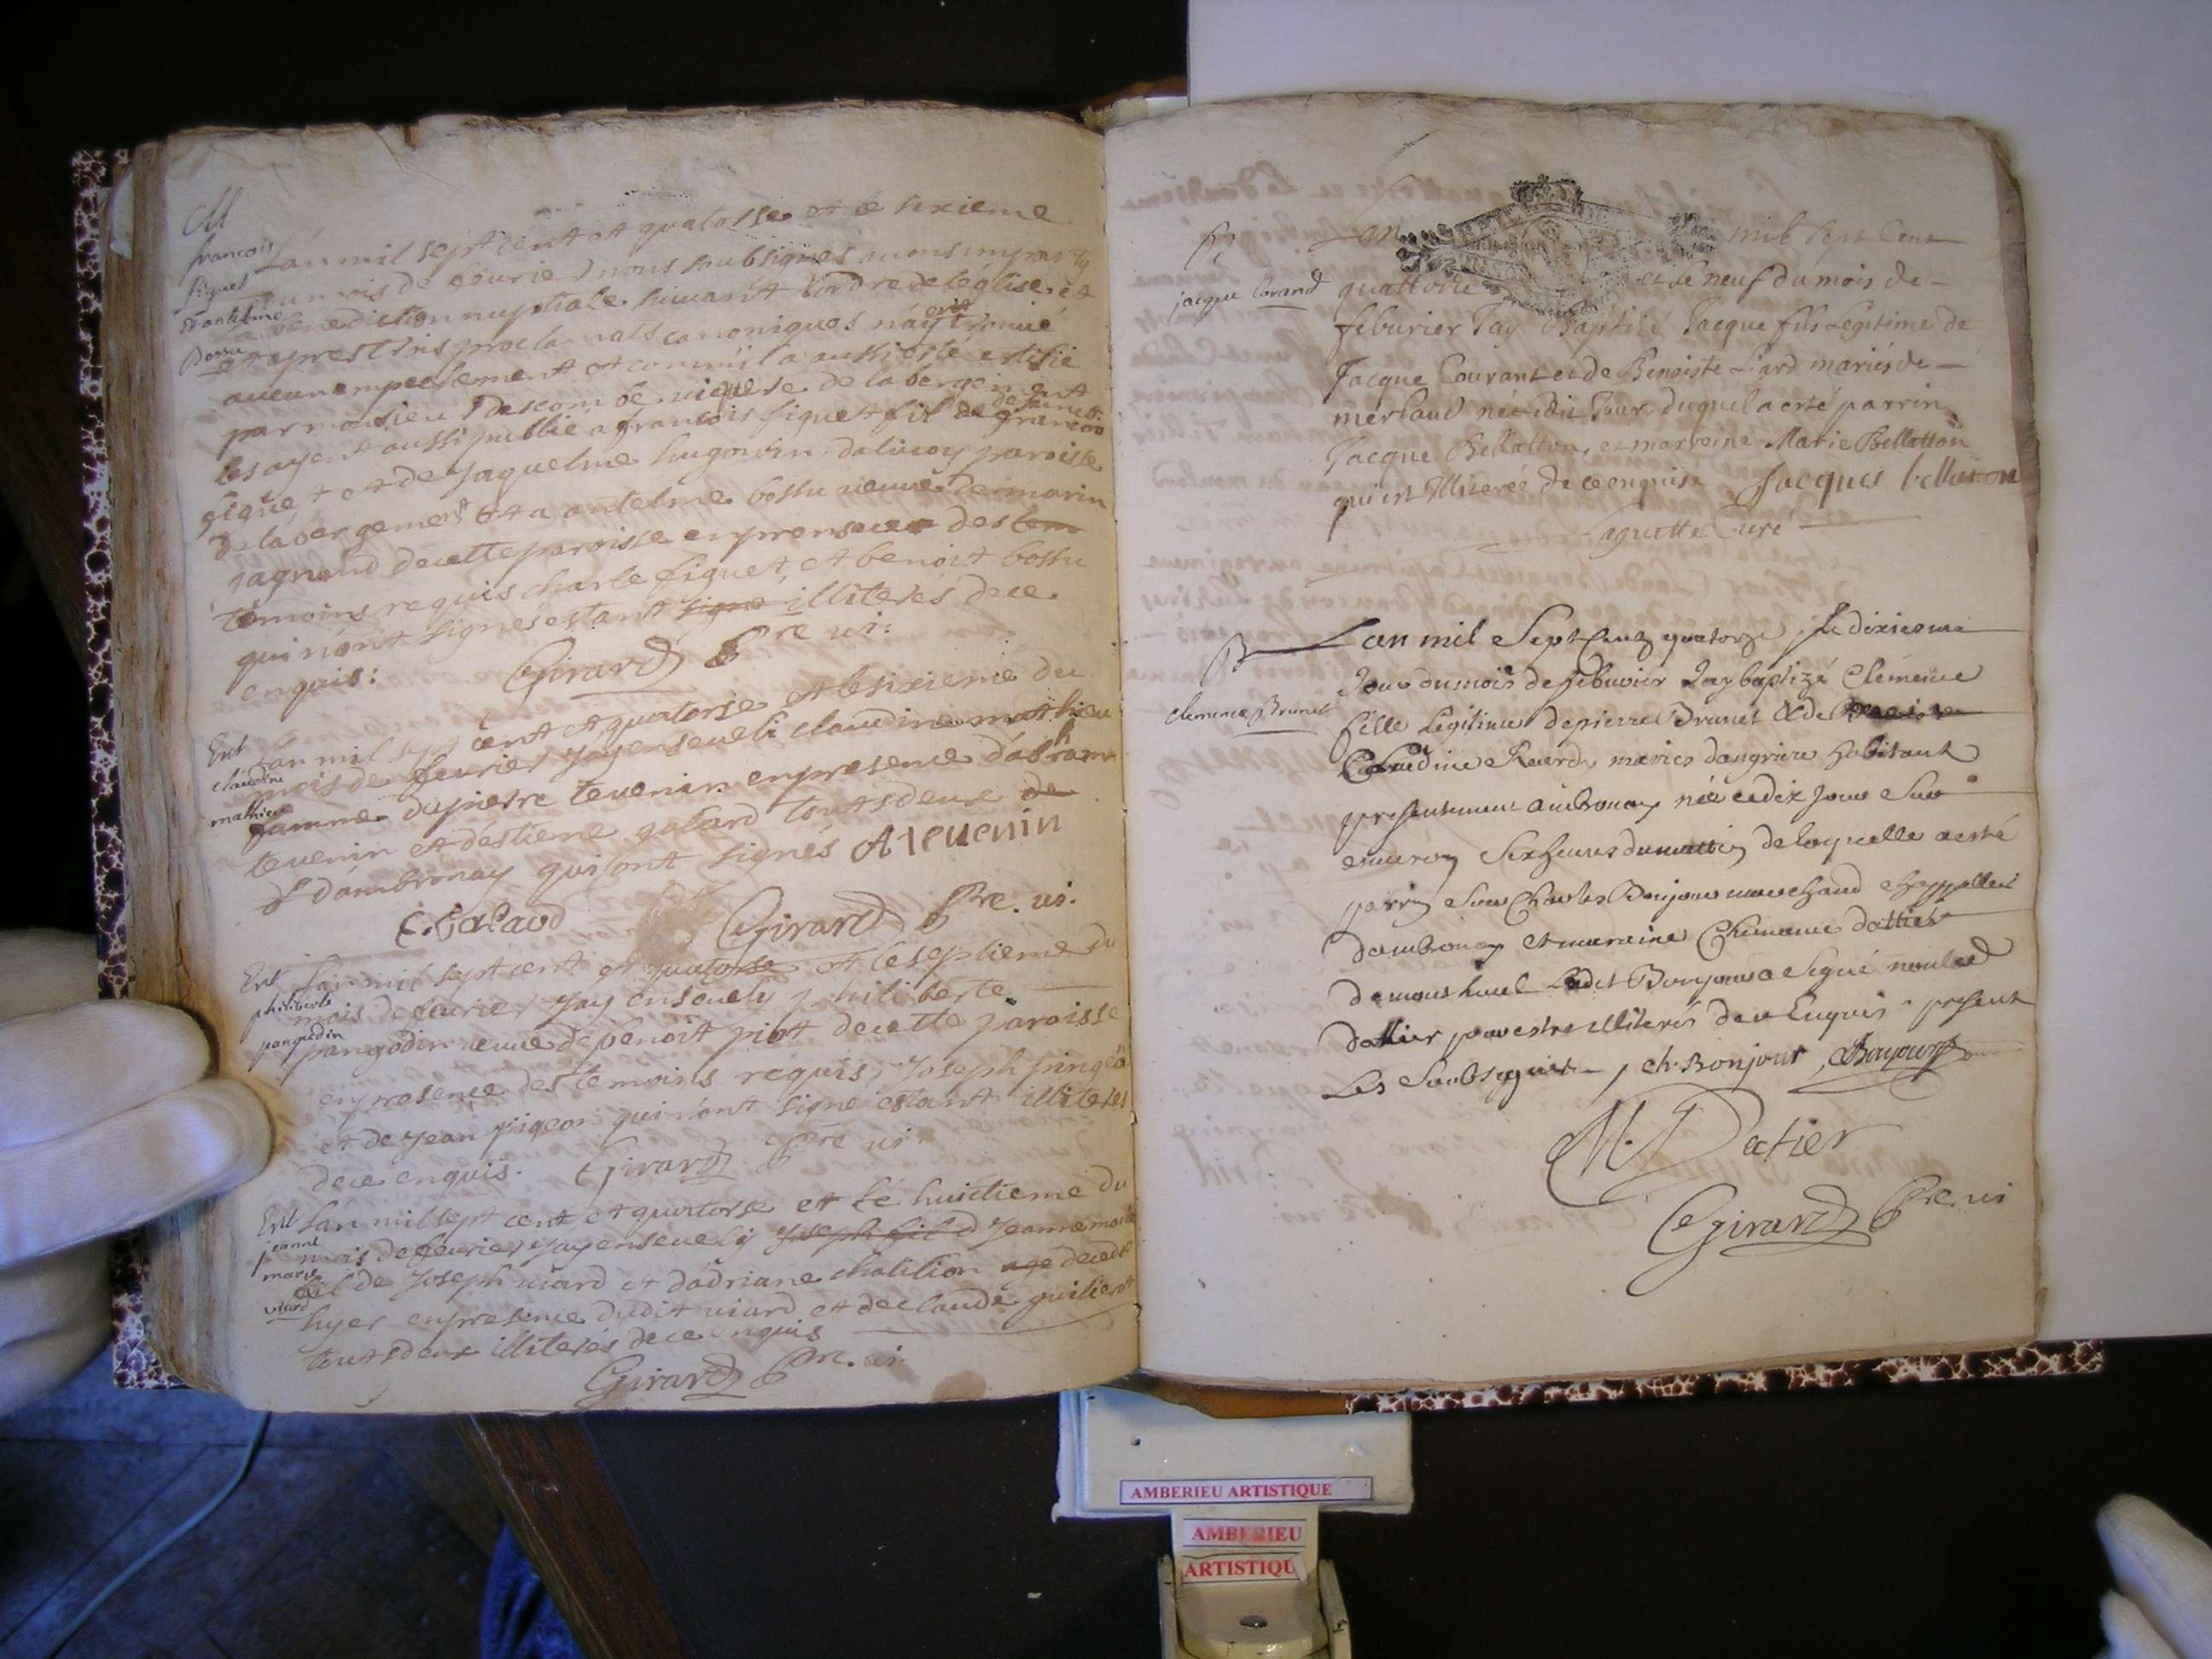 M
françois
figuet
et antelme
Bossu
Lan mil sept cent et quatorse et le sixieme
du mois de feurier nous soubsignés auons imparty
la benediction nuptiale suiuant lordre de léglise et
et apres trois proclamats canoniques nayent trouué
aucun empechement et comm'il a aussi esté certifié
par monsieur descombe uiquere de labergement
les ayent aussi publié a françois figuet fil de françois
figuet et de Jaquelme hugonin paroisse
de labergement et a antelme bossu ueuue de marin
jagnand de cette paroisse en presence des tem
temoins requis charle figuet et benoit bossu
qui n'ont signés estant signe illiterés de ce
enquis: Girard Ptre ui:
Ent
claudine
mathieu
Lan mil sept cent et quatorse et le sixieme du
mois de feurier J'ay enseueli claudine mathieu
famme de pierre teuenin en presence d'abraham
teuenin et d'estiene galard touts deux de
d'ambronay qui ont signés A teuenin
E. Galaod Girard Ptre. ui.
Ent
philiberte
pangodin
Lan mil sept cent et quatorse et le septieme du
mois de feurier J'ay enseuely philiberte
pangodin ueuue de benoit piot de cette paroisse
en presence des temoins requis, Joseph pingeon
et de Jean pigeon qui n'ont signé estant illiterés
de ce enquis. Girard Ptre ui
Ent
jeanne
marie
uiard
Lan mil sept cent et quatorse et le huictieme du
mois de feurier J'ay enseuely Joseph fil d Jeanne marie
fil de Joseph uiard et d'adriane chatilion age decedé
hyer en presence dudit uiard et de claude guilierot
touts deux illiterés de ce enquis
Girard Ptre. ui.
B
jacque Corand
Lan mil sept Cent
quattorze et le neuf du mois de
feburier Jay Baptizé Jacque fils Legitime de
Jacque Courant et de Benoiste Liard mariés de
merland né le dit Jour, duquel a esté parrin
Jacque Bellatton, et marraine Marie Bellatton
qui est Illiterée de ce enquise Jacques bellaton
Curé
B
clemence Brunet
Lan mil Sept Centz quatorze le dixiesme
Jour du mois de febvrier Jay baptizé Clemence
fille Legitime de pierre Brunet & de
Claudine mariés habitant
presentement a ambronay née ce dix Jour Sur
environ Six heures du mattin de laquelle a esté
parrin Sieur Charles Bonjour marchand
d'ambronay et maraine Clemence dattier
Ledit Bonjour a Signé non lad
dattier pour estre illiterés de ce Enquis present
Les Soubsignés, ch. Bonjour, Bonjour
M. Datier
Girard Ptre. ui
AMBERIEU ARTISTIQUE
AMBERIEU
ARTISTIQU